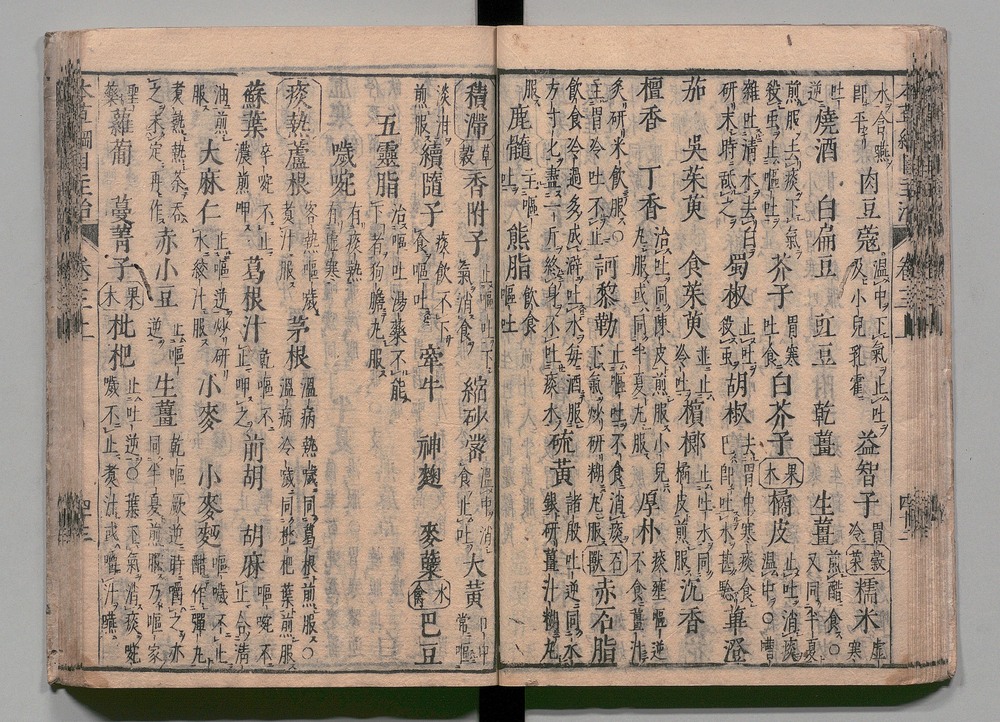 水合嚥即平 肉豆蔻 溫中下氣止吐及小兒乳霍 益智子 胃冷 穀菜 糯米 虛寒吐
逆 燒酒 白扁豆 豇豆 乾薑 生薑 煎醋食○又同半夏
煎服去痰下氣殺虫止嘔吐 芥子 胃寒吐食 白芥子 果木 橘皮 止吐消痰溫中○嘈
雜吐清水去白研末時舐之 蜀椒 殺虫 胡椒 去胃中寒痰食已即吐水甚驗 蓽澄
茄 吳茱萸 食茱萸 並止冷吐 檳榔 止吐水同橘皮煎服 沉香
檀香 丁香 治吐同陳皮煎服小兒丸服或同半夏丸服 厚朴 痰壅嘔逆不食薑汁
炙研米飲服○主胃冷吐不止 訶黎勒 止嘔吐不食消痰下氣炒研糊丸服 石 赤石脂
飲食冷過多成澼吐水每酒服方寸匕盡一斤終身不吐痰水 硫黃 諸般吐逆同水銀研薑汁糊丸 獸
鹿髓 主嘔吐 熊脂 飲食嘔吐
積滯 草穀 香附子 止嘔吐下氣消食 縮砂蔤 溫中消食止吐 大黃 口中常嘔
淡泔煎服 續隨子 痰飲不下食嘔吐 牽牛 神麴 麥蘗 木禽 巴豆
五靈脂 治嘔吐湯藥不能下者狗膽丸服
噦啘 有痰熱有虛寒
痰熱 蘆根 客熱嘔噦煮汁服 茅根 溫病熱噦同葛根煎服○溫病冷噦同枇杷葉煎服
蘇葉 卒啘不止濃煎呷 葛根汁 乾嘔不止呷之 前胡 胡麻 嘔啘不止合清
油煎服 大麻仁 止嘔逆炒研水絞汁服 小麥 小麥麪 嘔噦不止醋作彈丸
煮熟熱茶吞之未定再作 赤小豆 止嘔逆 生薑 乾嘔厥逆時嚼之亦同半夏煎服乃嘔家
聖藥 蘿蔔 蔓菁子 果木 枇杷 止吐逆○葉下氣消痰啘噦不止煮汁或嚼汁嚥